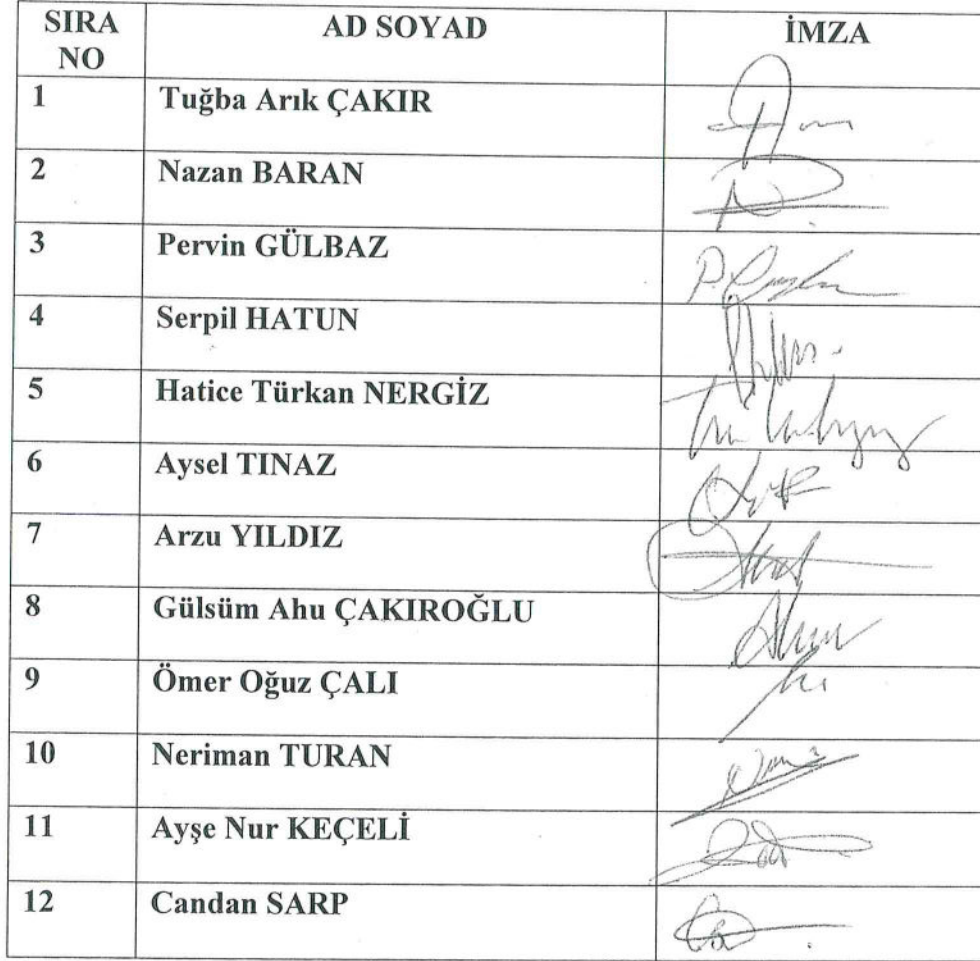 SIRA NO AD SOYAD İMZA
1 Tuğba Arık ÇAKIR
2 Nazan BARAN
3 Pervin GÜLBAZ
4 Serpil HATUN
5 Hatice Türkan NERGİZ
6 Aysel TINAZ
7 Arzu YILDIZ
8 Gülsüm Ahu ÇAKIROĞLU
9 Ömer Oğuz ÇALI
10 Neriman TURAN
11 Ayşe Nur KEÇELİ
12 Candan SARP